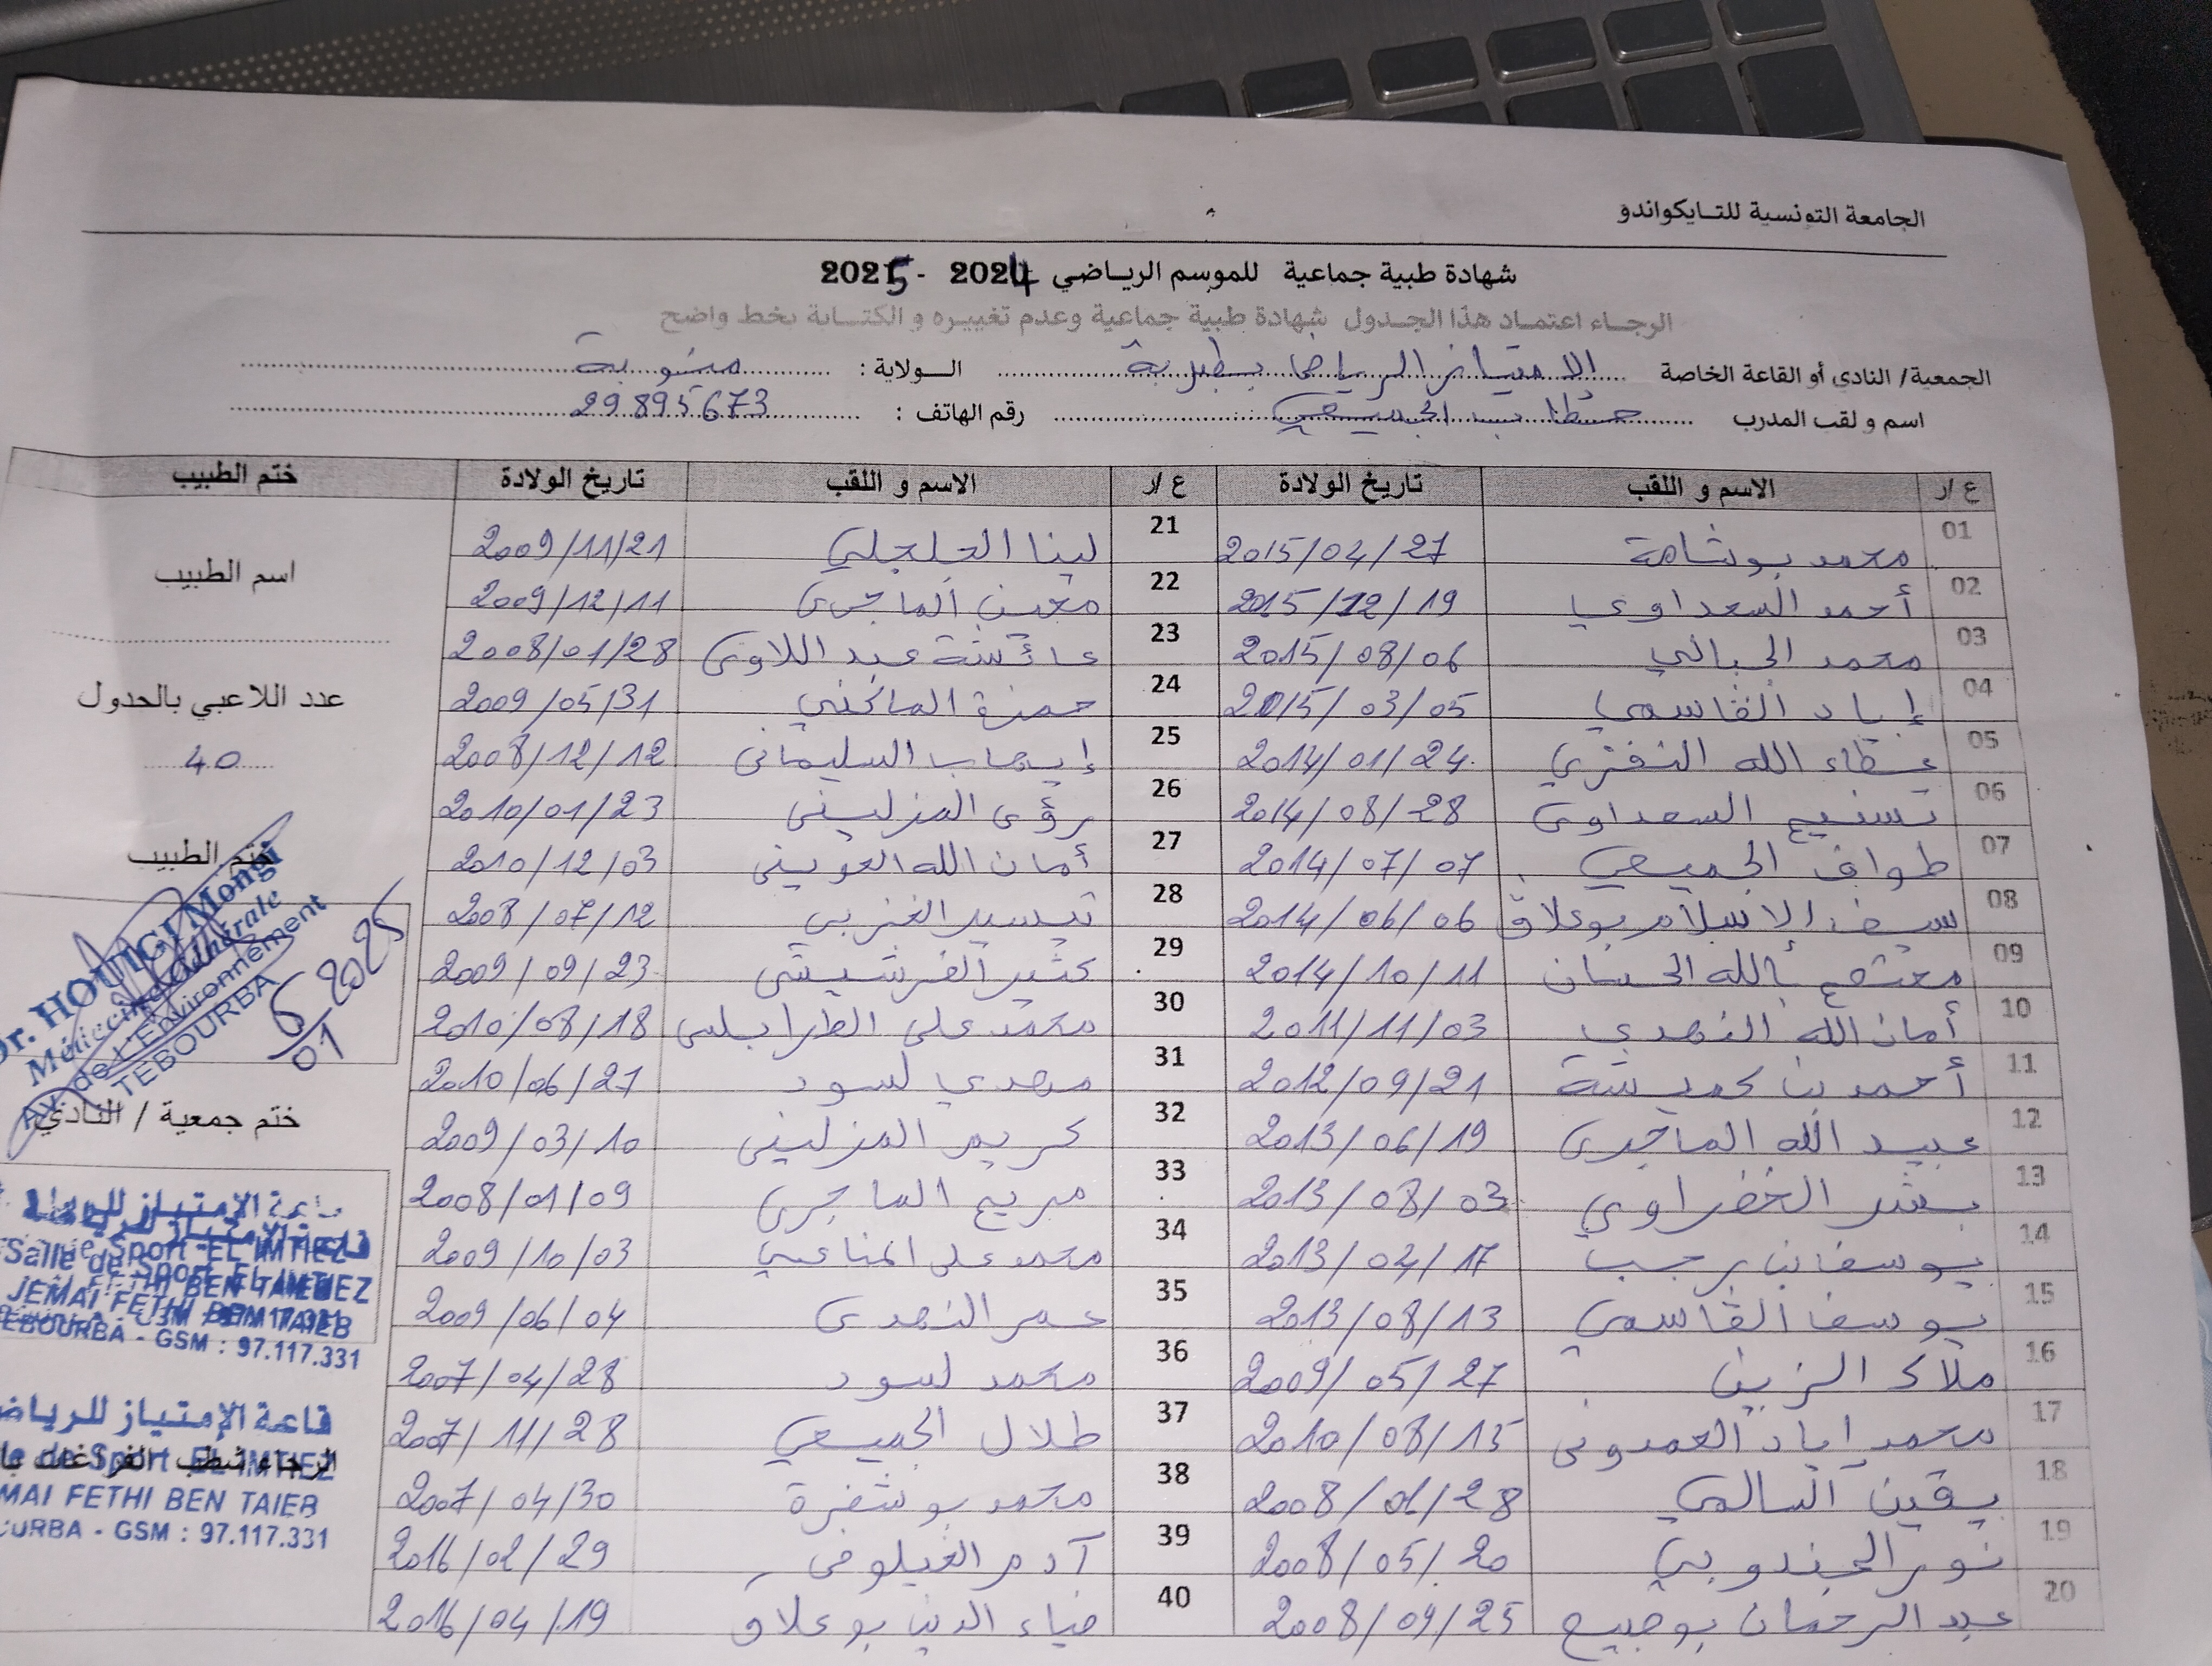 الجامعة التونسية للتايكواندو
شهادة طبية جماعية للموسم الرياضي 2024 - 2025
الرجاء اعتماد هذا الجدول شهادة طبية جماعية وعدم تغييره و الكتابة بخط واضح
الجمعية/ النادي أو القاعة الخاصة الامتياز الرياضي بطبربة الولاية : منوبة
اسم و لقب المدرب الجميعي رقم الهاتف : 29895673
ع /ر الاسم و اللقب تاريخ الولادة ع /ر الاسم و اللقب تاريخ الولادة ختم الطبيب
01 محمد بوشامة 2015/04/27 21 لينا الجلجلي 2009/11/21
02 أحمد السعداوي 2015/12/19 22 معين الماجري 2009/12/11
03 محمد الجبالي 2015/08/06 23 عائشة عبد اللاوي 2008/01/28
04 إياد القاسمي 2015/03/05 24 حمزة الماكني 2009/05/31
05 عطاء الله النفزي 2014/01/24 25 إيهاب السليماني 2008/12/12
06 تسنيم السعداوي 2014/08/28 26 رؤى المزليني 2010/01/23
07 طواف الجميعي 2014/07/07 27 أمان الله العويني 2010/12/03
08 سيف الاسلام بوعلاق 2014/06/06 28 تيسير الغربي 2008/07/12
09 معتصم بالله الحسان 2014/10/11 29 الفرشيشي 2009/09/23
10 أمان الله النهدي 2011/11/03 30 محمد علي الطرابلسي 2010/08/18
11 أحمد بن حميشة 2012/09/21 31 مهدي لسود 2010/06/27
12 عبيد الله الماجري 2013/06/19 32 كريم المزليني 2009/03/10
13 بشر الخضراوي 2013/08/03 33 مريم الماجري 2008/01/09
14 يوسف بن رجب 2013/04/17 34 محمد علي المناعي 2009/10/03
15 يوسف القاسمي 2013/08/13 35 عمر النهدي 2009/06/04
16 ملاك الزين 2009/05/27 36 محمد لسود 2007/04/28
17 محمد اياد العمدوني 2010/08/15 37 طلال الجميعي 2007/11/28
18 يقين السالمي 2008/01/28 38 محمد بوشفرة 2007/04/30
19 نور الجندوبي 2008/05/20 39 آدم الغيلوفي 2016/02/29
20 عبد الرحمان بوجبيح 2008/09/25 40 ضياء الدين بوعلاق 2016/04/19
اسم الطبيب
عدد اللاعبي بالجدول
40
ختم الطبيب
Dr. HOUIGI Mongi
Médecine Générale
Av. de L'Environnement
TEBOURBA
6/01 2025
ختم جمعية / النادي
قاعة الإمتياز للرياضة
Salle de Sport EL IMTIEZ
JEMAI FETHI BEN TAIEB
TEBOURBA - GSM : 97.117.331
قاعة الإمتياز للرياض
le de Sport EL IMTIEZ
MAI FETHI BEN TAIEB
OURBA - GSM : 97.117.331